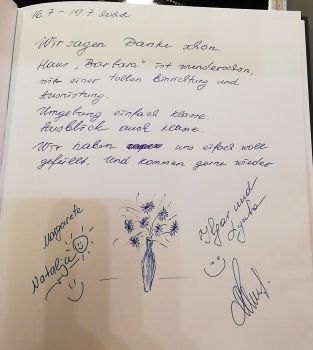 16.7 - 19.7 2020
Wir sagen Danke schön
Haus "Barbara" ist wunderschön,
mit einer tollen Einrichtung und
Ausrüstung.
Umgebung einfach klasse
Ausblick auch klasse.
Wir haben uns eifach woll
gefühlt, und kommen gerne wieder
Margarete
Natalja
Igor und